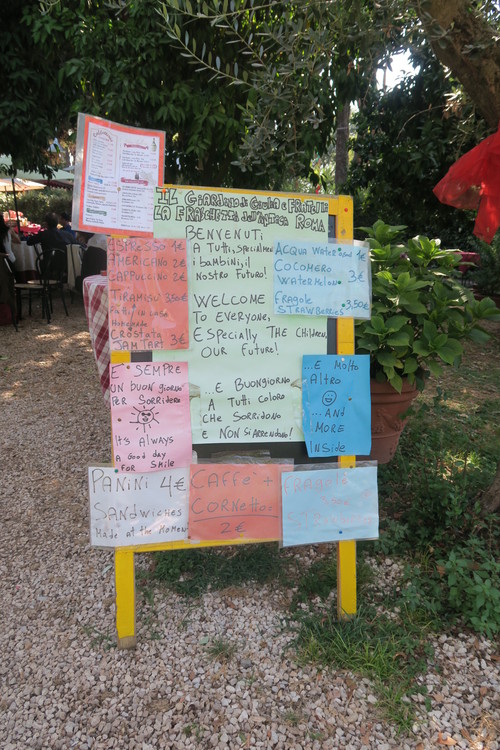 IL GIARDINO di GIULIA e FRATELLI
LA FRASCHETTA dell'
ROMA
BENVENUTI
A TUTTI, SPECIALMENTE
i bambini, il
NOSTRO FUTURO!
WELCOME
TO EVERYONE,
ESPECIALLY THE CHILDREN,
OUR FUTURE!
...E BUONGIORNO
A TUTTI COLORO
CHE SORRIDONO
E NON SI ARRENDONO!
ESPRESSO 1€
AMERICANO 2€
CAPPUCCINO 2€
TIRAMISÙ 3,50€
FATTI IN CASA
Homemade
CROSTATA
JAM TART 3€
ACQUA WATER 1€
COCOMERO
WATERMELON 3€
FRAGOLE
STRAWBERRIES 3,50€
E' SEMPRE
UN BUON GIORNO
PER SORRIDERE
It's ALWAYS
A Good DAY
FOR SMILE
...E MOLTO
ALTRO
... AND
MORE
INSIDE
PANINI 4€
SANDWICHES
MADE AT THE MOMENT
CAFFE' +
CORNETTO
2€